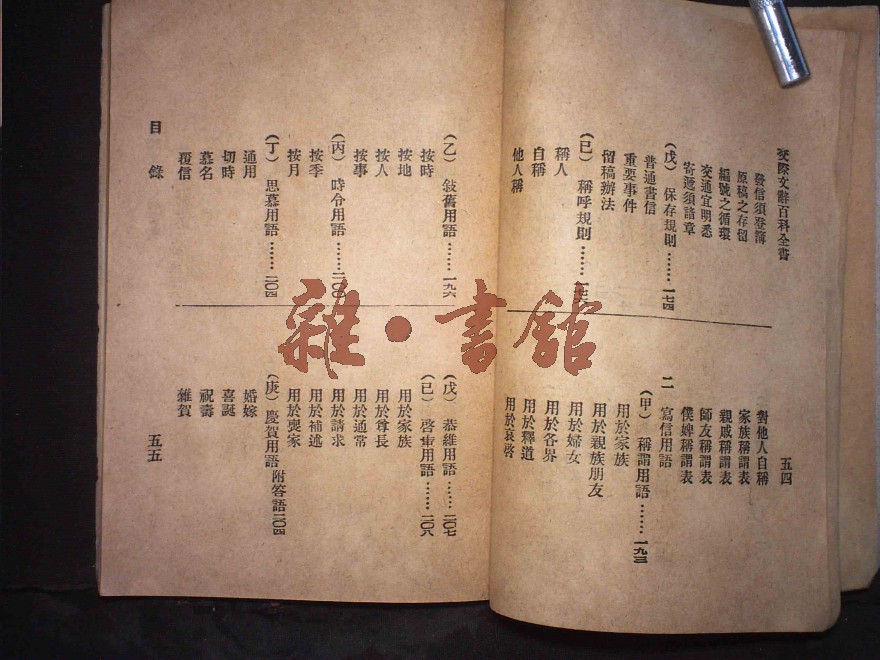 交際文辭百科全書
發信須登簿
原稿之存留
編號之循環
交通宜明悉
寄遞須諳章
（戊）　保存規則……一七四
普通書信
重要事件
留稿辦法
（已）　稱呼規則……一七六
稱人
自稱
他人稱
五四
對他人自稱
家族稱謂表
親戚稱謂表
師友稱謂表
僕婢稱謂表
二　寫信用語
（甲）　稱謂用語……一九三
用於家族
用於親族朋友
用於婦女
用於各界
用於釋道
用於哀啓
（乙）　敍舊用語……一九六
按時
按地
按人
按事
（丙）　時令用語……二〇〇
按季
按月
（丁）　思慕用語……二〇四
通用
切時
慕名
覆信
目錄
（戊）　恭維用語……二〇七
（已）　啓事用語……二〇八
用於家族
用於尊長
用於通常
用於請求
用於補述
用於喪家
（庚）　慶賀用語附答語二〇四
婚嫁
喜誕
祝壽
雜賀
五五
雜·書館